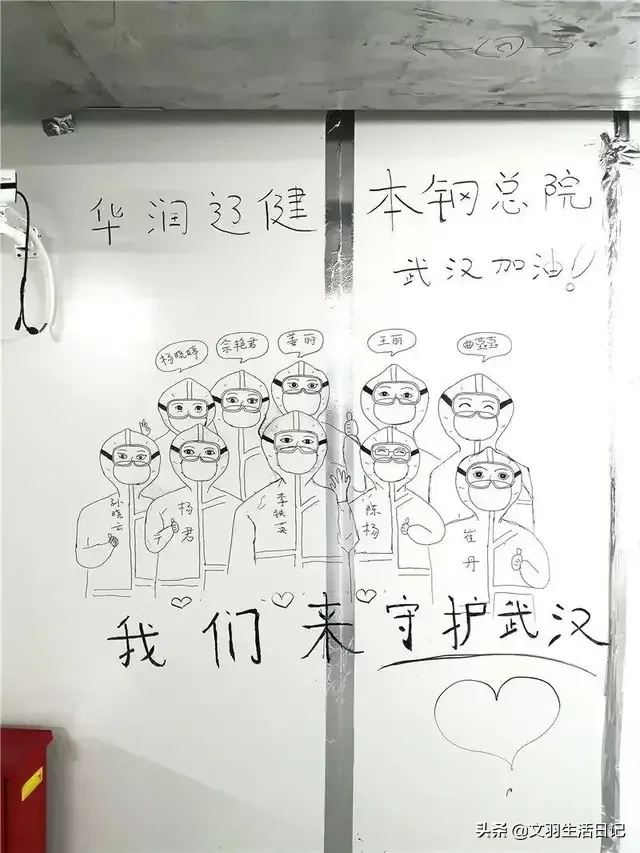 华润辽健 本钢总院
武汉加油!
杨晓婷 佘艳君 姜丽 王丽 曲蕓蕓
孙晓云 杨君 李铁英 陈杨 崔丹
我们来守护武汉
头条 @文羽生活日记